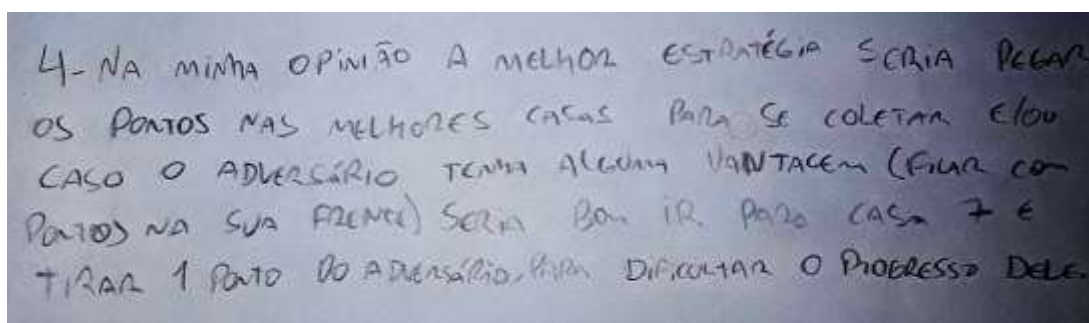 4- NA MINHA OPINIÃO A MELHOR ESTRATÉGIA SERIA PEGAR
OS PONTOS NAS MELHORES CASAS PARA SE COLETAR E/OU
CASO O ADVERSÁRIO TENHA ALGUMA VANTAGEM (FICAR COM
PONTOS NA SUA FRENTE) SERIA BOM IR PARA CASA 7 E
TIRAR 1 PONTO DO ADVERSÁRIO, PARA DIFICULTAR O PROGRESSO DELE